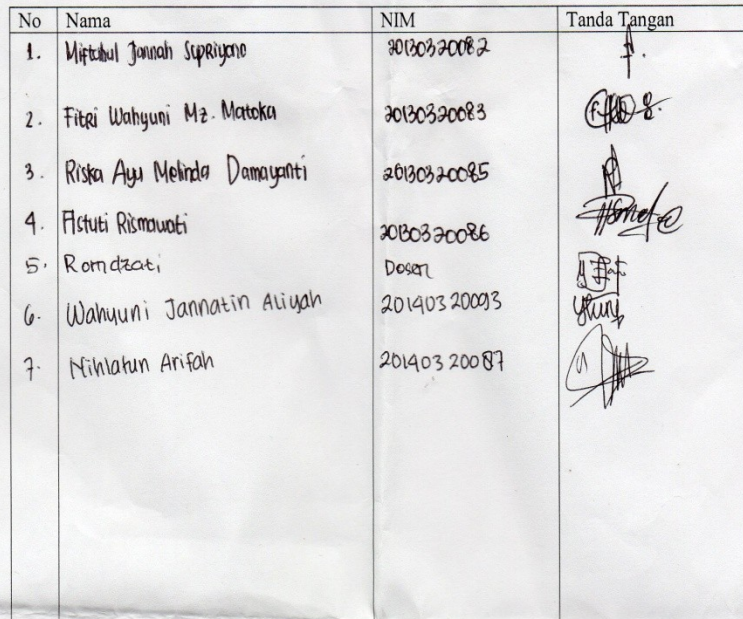 No Nama NIM Tanda Tangan
1. Miftahul Jannah Supriyono 20130320082
2. Fitri Wahyuni Mz. Matoka 20130320083
3. Riska Ayu Melinda Damayanti 20130320085
4. Astuti Rismawati 20130320086
5. Romdzati Dosen
6. Wahyuni Jannatin Aliyah 20140320093
7. Nihlatun Arifah 20140320087